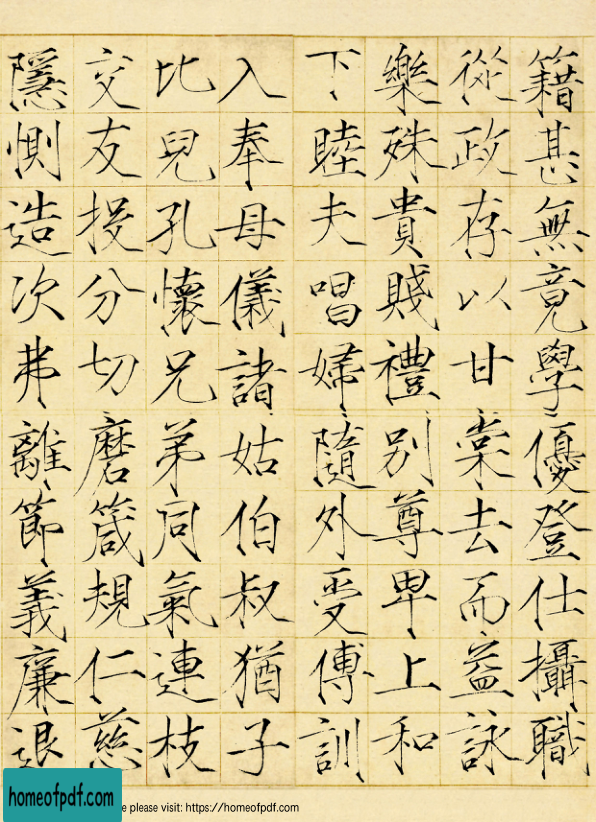 籍甚無竟學優登仕攝職
從政存以甘棠去而益詠
樂殊貴賤禮別尊卑上和
下睦夫唱婦隨外受傅訓
入奉母儀諸姑伯叔猶子
比兒孔懷兄弟同氣連枝
交友投分切磨箴規仁慈
隱惻造次弗離節義廉退
homeofpdf.com
please visit: https://homeofpdf.com